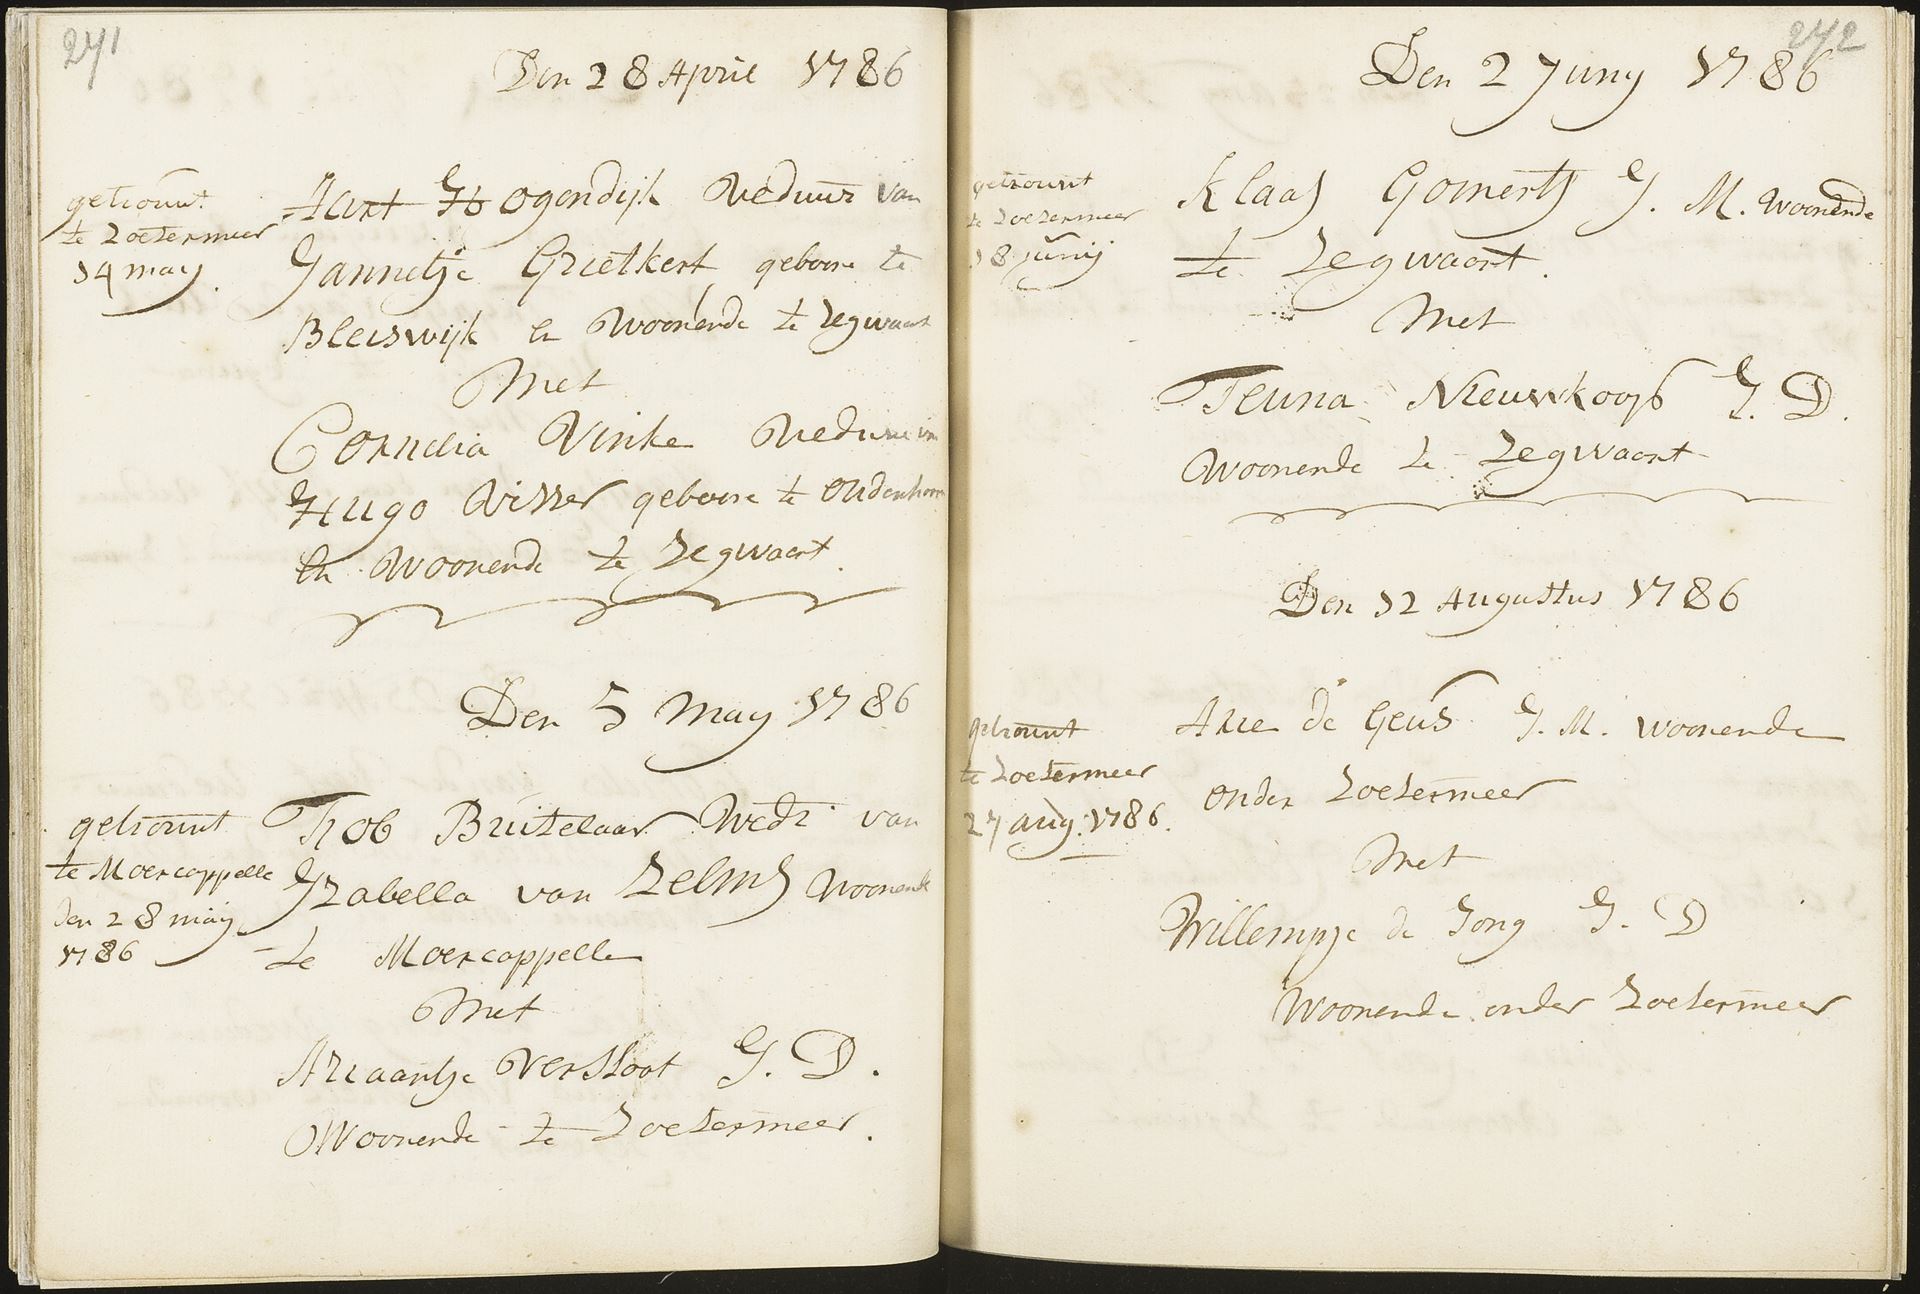 271
Den 28 April 1786
getrouwt
te Zoetermeer
14 may.
Aart Hogendijk Weduwr van
Jannetje Grietkert geboore te
Bleiswijk en Woonende te Zegwaart
Met
Cornelia Vinke Weduwe van
Hugo Visser geboore te Oudenhoorn
En Woonende te Zegwaart.
Den 5 May 1786
getrouwt
te Moercappelle
den 28 may
1786
Huob Buitelaar Wedr van
Izabella van Zelms Woonende
te Moercappelle
Met
Ariaantje Versloot J. D.
Woonende te Zoetermeer.
272
Den 2 Juny 1786
getrouwt
te Zoetermeer
18 junij
Klaas Gomerts J. M. Woonende
te Zegwaart.
Met
Teuna Nieuwkoop J. D.
Woonende te Zegwaart
Den 12 Augustus 1786
getrouwt
te Zoetermeer
27 aug: 1786.
Arie de Geus J. M. woonende
onder Zoetermeer
Met
Willempje de Jong J. D
Woonende onder Zoetermeer